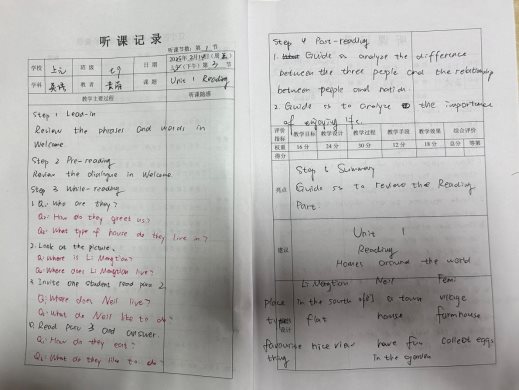 听课记录
听课节数：第 1 节
学校
班级 七9
日期 2025年2月18日（周五）
（下午）第 3 节
学科 英语
教者
课题 Unit 1 Reading
教学主要过程
听课随感
Step 1 Lead-in
Review the phrases and words in
Welcome.
Step 2 Pre-reading
Review the dialogue in Welcome.
Step 3 While-reading
1. Q1: Who are they?
Q2: How do they greet us?
Q3: What type of house do they live in?
2. Look at the picture.
Q: Where is Li Mengtian?
Q: Where does Li Mengtian live?
3. Invite one student read para 2.
Q: Where does Neil live?
Q: What do Neil like to do?
Read para 3 and answer.
Q: How do they eat?
Q: What do they like to do?
Step 4 Post-reading
1. Guide ss to analyze the difference
between the three people and the relationship
between people and nation.
2. Guide ss to analyze the importance
of enjoying life.
评价指标 教学目标 教学设计 教学过程 教学手段 教学效果 综合评价
权重 16分 24分 30分 12分 18分 总分 等第
得分
Step 5 Summary
亮点
Guide ss to review the Reading
Part.
建议
Unit 1
Reading
Homes around the world
Li Mengtian Neil Femi
place in the south of a town village
type flat house farmhouse
设计
favourite nice view have fun collect eggs
thing in the garden